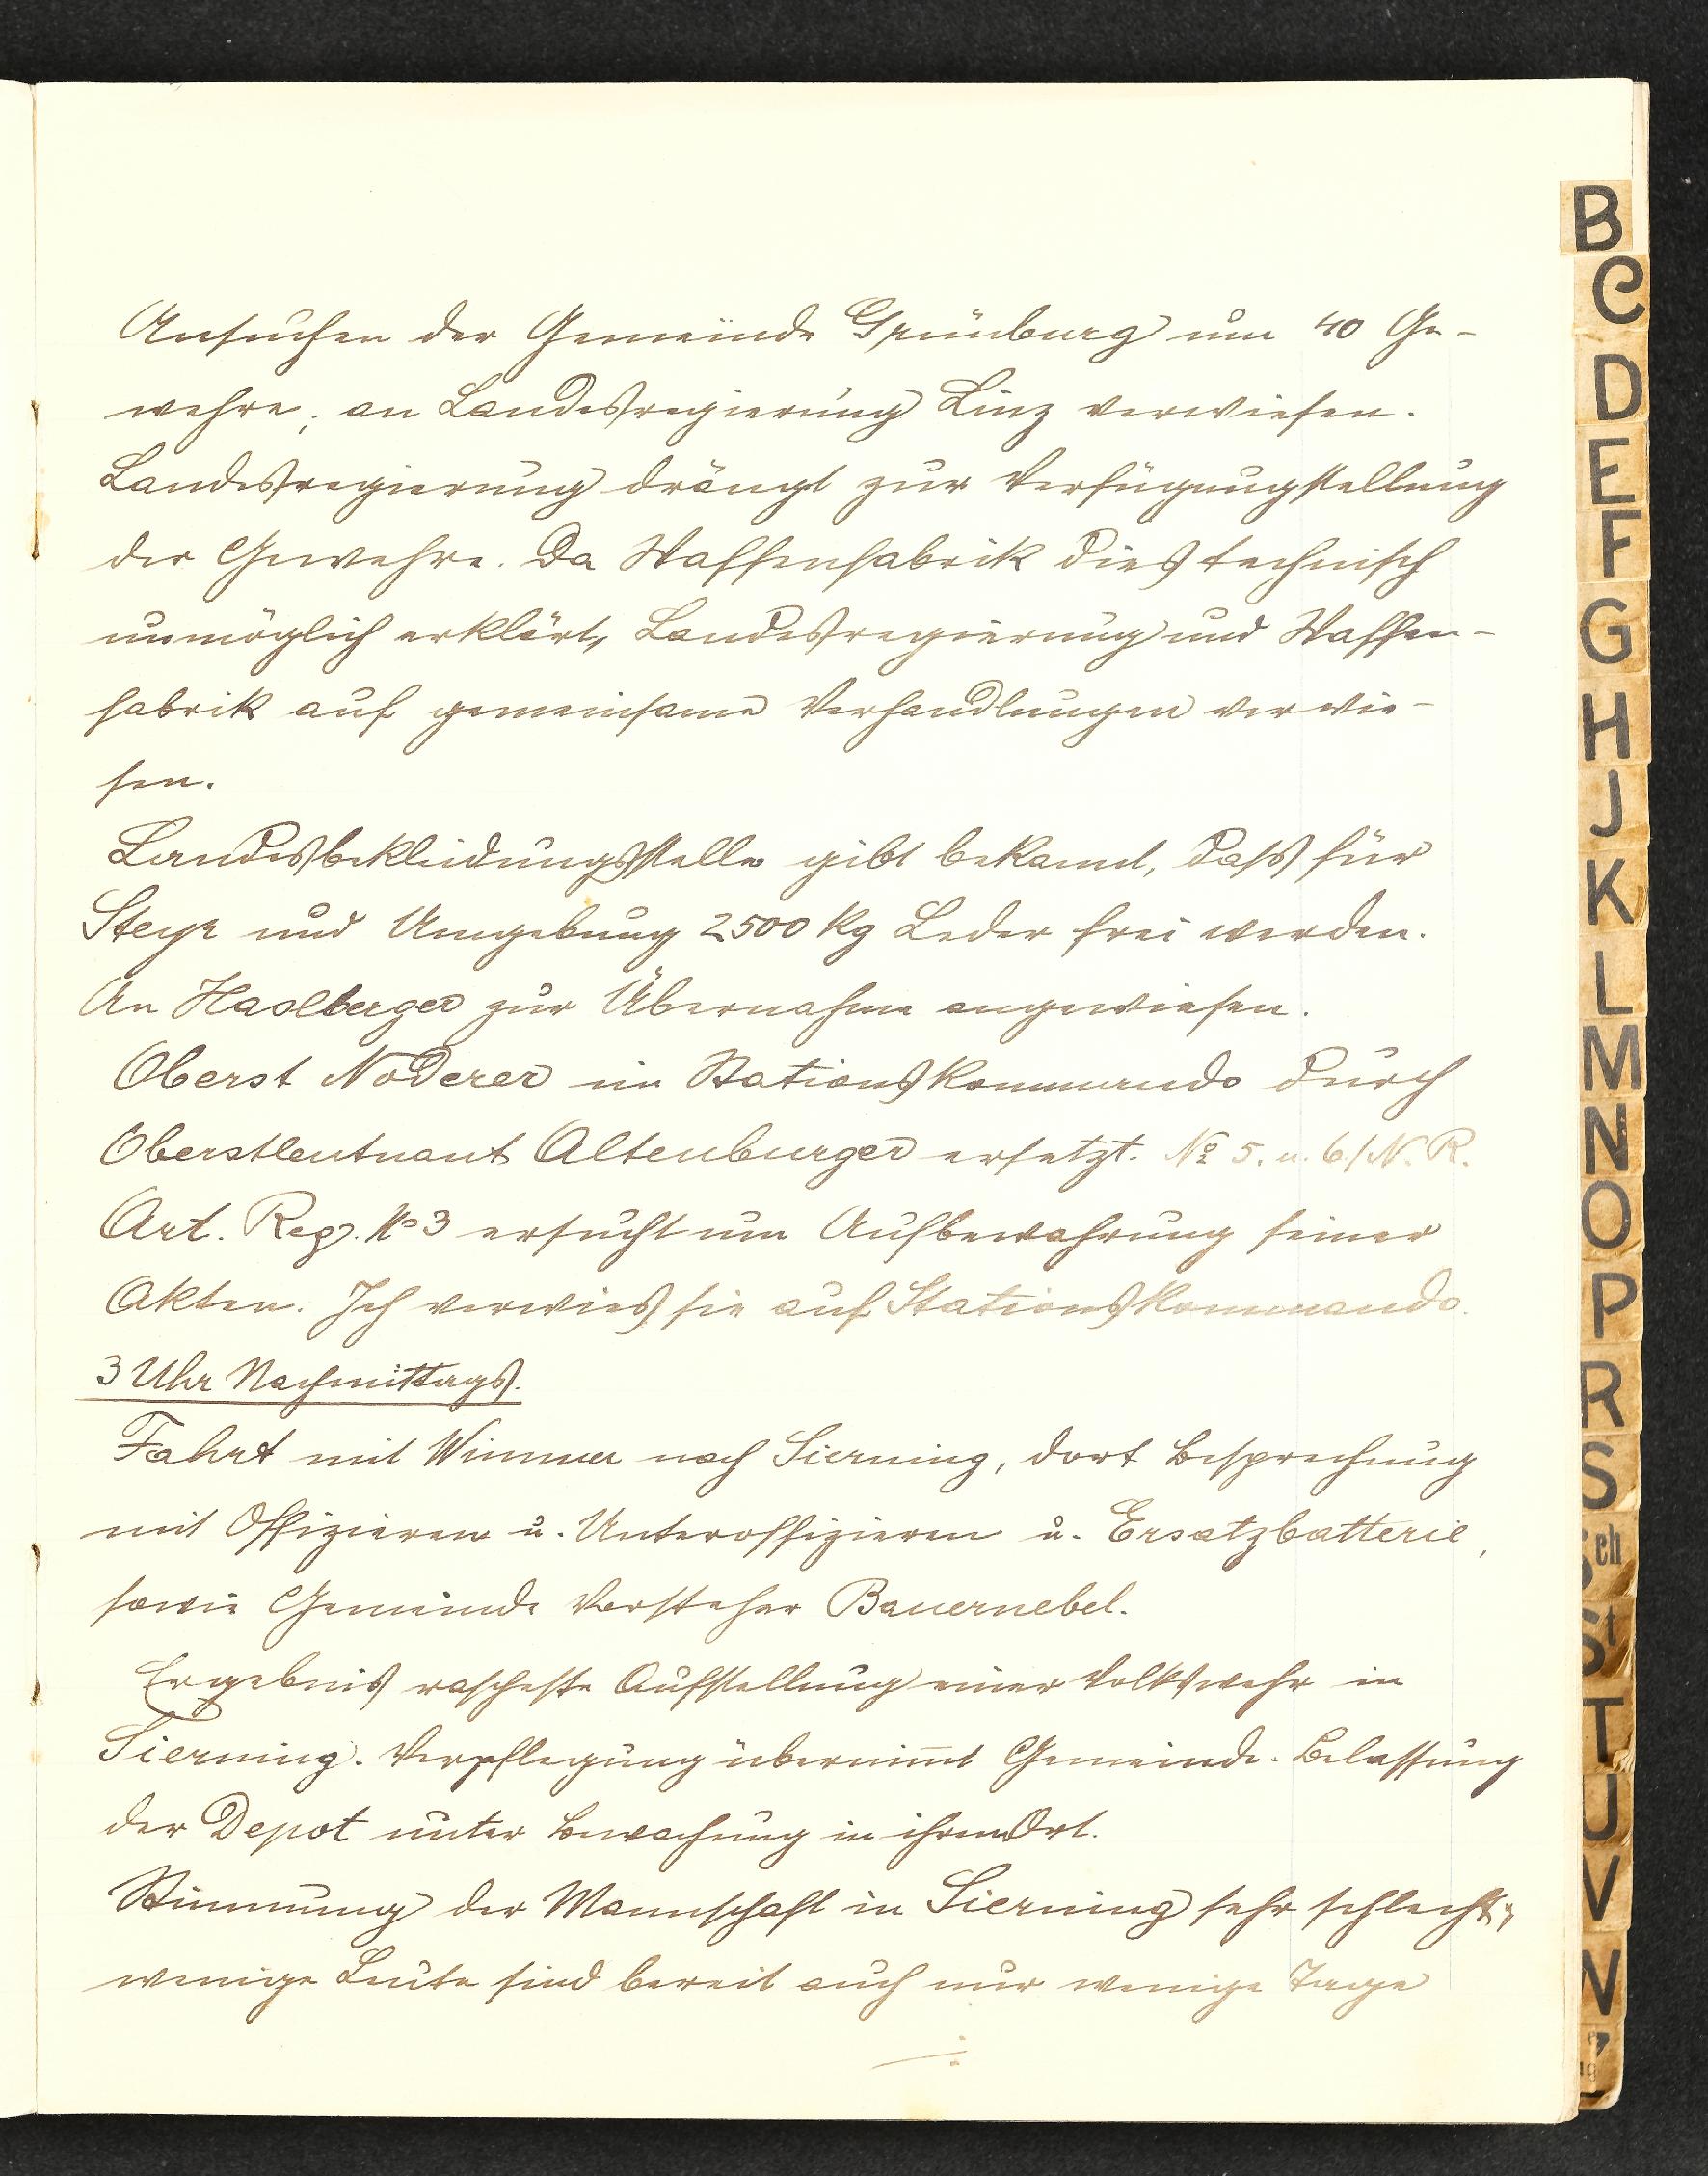 Ansuchen der Gemeinde Grünburg um 40 Ge-
wehre; an Landesregierung Linz verwiesen.
Landesregierung drängt zur Verfügungstellung
der Gewehre. Da Waffenfabrik dies technisch
unmöglich erklärt, Landesregierung und Waffen-
fabrik auf gemeinsame Verhandlungen verwie-
sen.
Landesbekleidungsstelle gibt bekannt, dass für
Steyr und Umgebung 2500 kg Leder frei werden.
An Haslberger zur Übernahme angewiesen.
Oberst Noderer im Stationskommando durch
Oberstleutnant Altenburger ersetzt. No 5. u. 6./N. R.
Art. Reg. No 3 ersucht um Aufbewahrung seiner
Akten. Ich verwies sie auf Stationskommando.
3 Uhr Nachmittags.
Fahrt mit Wimmer nach Sierning, dort Besprechung
mit Offizieren u. Unteroffizieren u. Ersatzbatterie,
sowie Gemeinde Vorsteher Bauernebel.
Ergebnis rascheste Aufstellung einer Volkswehr in
Sierning. Verpflegung übernimmt Gemeinde. Belassung
der Depot unter Bewachung in ihrem Ort.
Stimmung der Mannschaft in Sierning sehr schlecht;
wenige Leute sind bereit auch nur wenige Tage
B
C
D
E
F
G
H
J
K
L
M
N
O
P
R
S
Sch
St
T
U
V
W